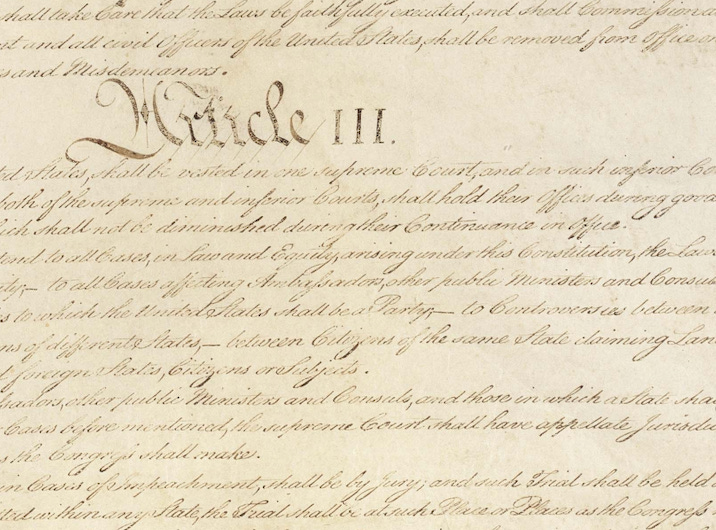 shall take Care that the Laws be faithfully executed, and shall Commission a
nt and all civil Officers of the United States, shall be removed from Office on
es and Misdemeanors.
Article III.
ted States, shall be vested in one supreme Court, and in such inferior Co
both of the supreme and inferior Courts, shall hold their Offices during good
hich shall not be diminished during their Continuance in Office.
tend to all Cases, in Law and Equity, arising under this Constitution, the Laws
ity;— to all Cases affecting Ambassadors, other public Ministers and Consuls
s to which the United States shall be a Party;— to Controversies between
ns of different States,— between Citizens of the same State claiming Lan
d foreign States, Citizens or Subjects.
ssadors, other public Ministers and Consuls, and those in which a State sha
r Cases before mentioned, the supreme Court shall have appellate Jurisdic
s the Congress shall make.
in Cases of Impeachment, shall be by Jury; and such Trial shall be held
ted within any State, the Trial shall be at such Place or Places as the Congress